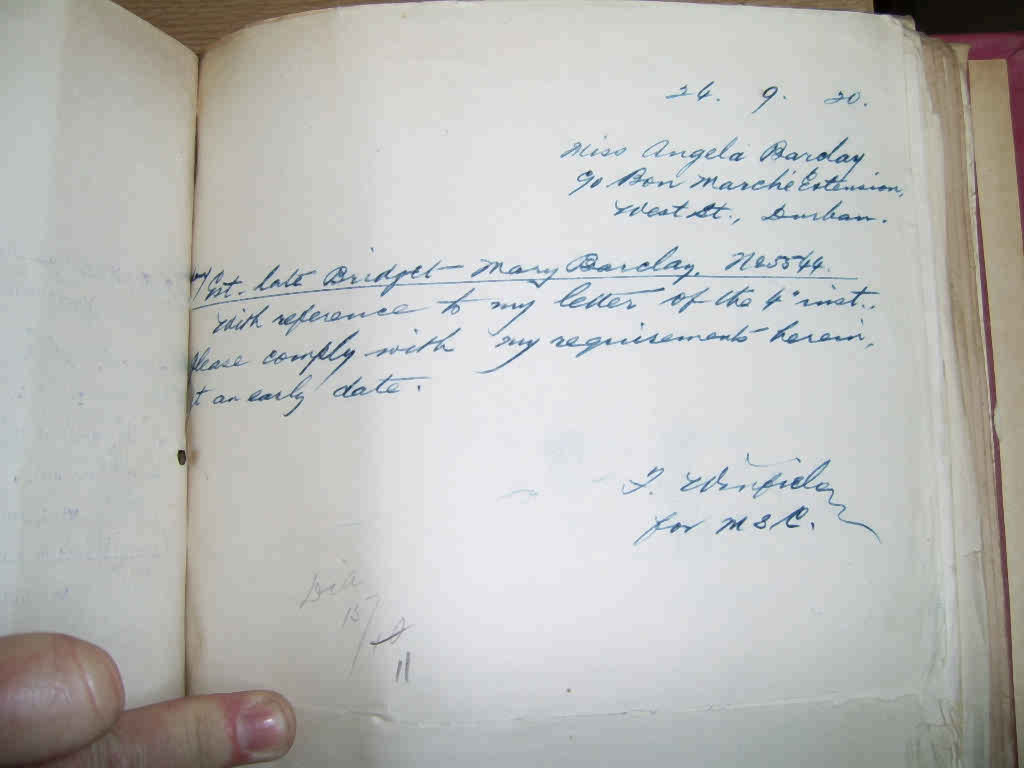 24. 9. 20.
Miss Angela Barclay
c/o Bon Marché Extension,
West St., Durban.
Est. late Bridget Mary Barclay. No 5544.
With reference to my letter of the 4" inst.,
please comply with my requirements herein,
at an early date.
F. Winfield
for M S C.
15/
11